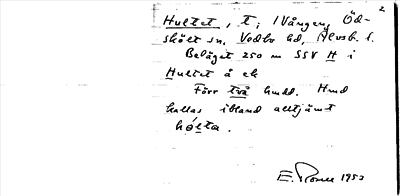 2
Hultet, t, i Vången, Öd-
skölt sn, Vedbo hd, Älvsb. l.
Beläget 250 m SSV H i
Hultet å ek
Förr två hmd. Hmd
kallas ibland alltjämt
hólta.
E. 1953